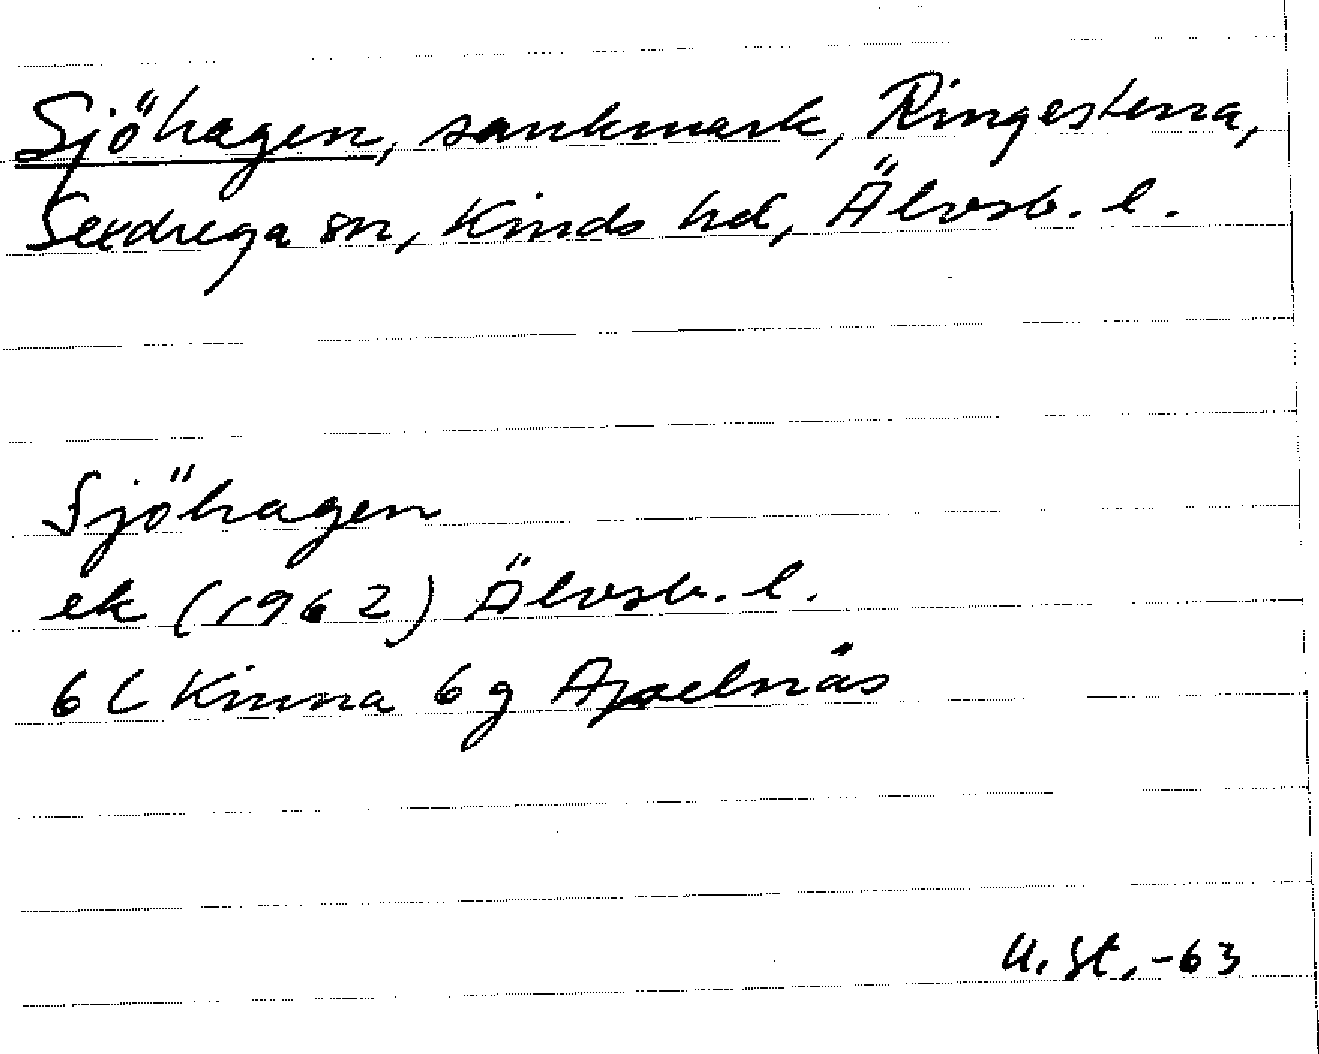 Sjöhagen, sankmark, Ringestena,
Sexdrega sn, Kinds hd, Älvsb. l.
Sjöhagen
ek (1962) Älvsb. l.
6 C Kinna 6 g Apelnäs
U. St. -63